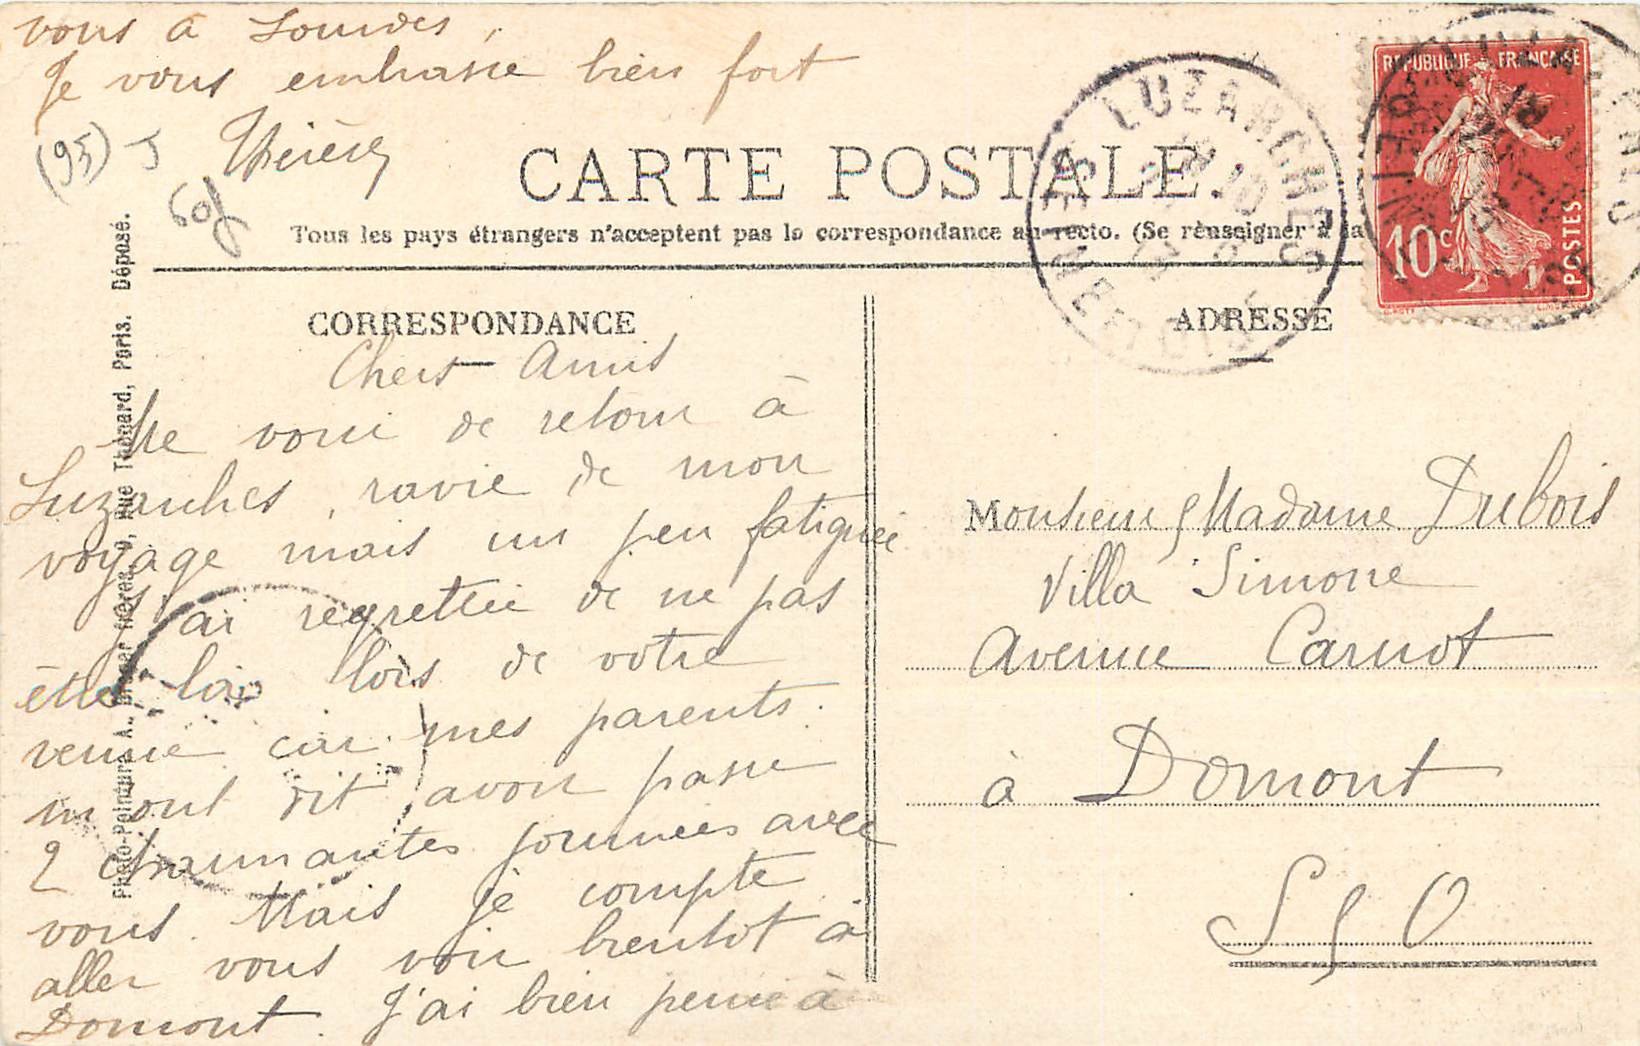 vous à Lourdes,
Je vous embrasse bien fort
Thérèse
(95) J
60f
CARTE POSTALE.
Tous les pays étrangers n'acceptent pas la correspondance au recto. (Se renseigner à la
CORRESPONDANCE
ADRESSE
Chers Amis
Me voici de retour à
Luzarches, ravie de mon
voyage mais un peu fatiguée
J'ai regrettée de ne pas
être là lors de votre
venue car mes parents
m'ont dit avoir passé
2 charmantes journées avec
vous. Mais je compte
aller vous voir bientôt à
Domont. J'ai bien pensé à
Monsieur & Madame Dubois
Villa Simone
Avenue Carnot
à Domont
S & O
Photo-Peinture A. Breger frères, 9, Rue Thénard, Paris. Déposé.
LUZARCHES
SEINE-ET-OISE
REPUBLIQUE FRANÇAISE
10c
POSTES